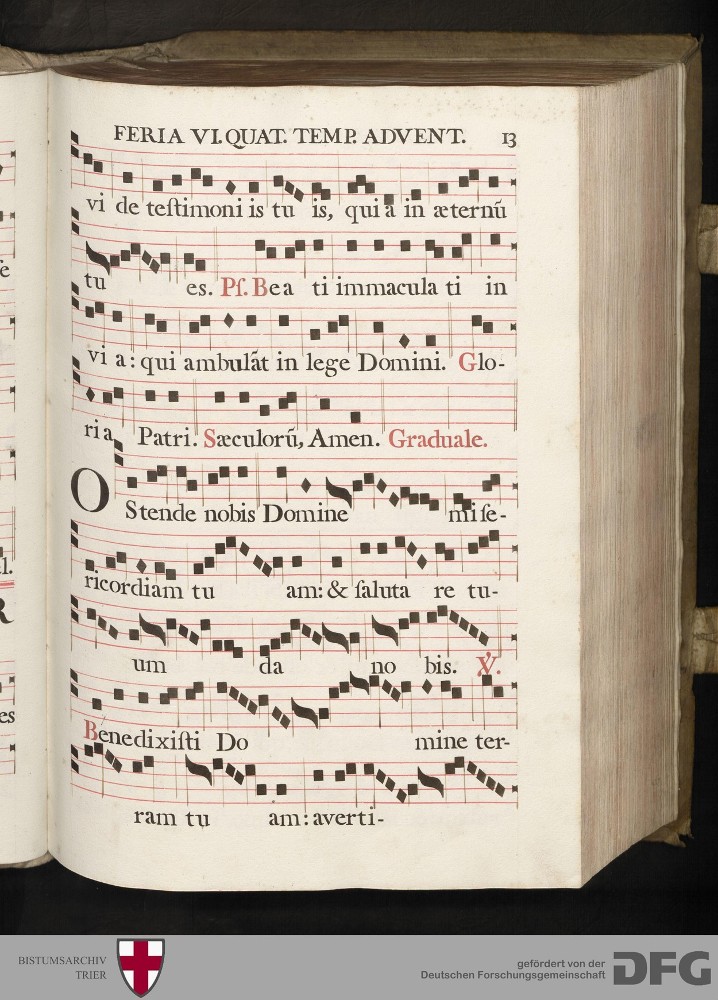 FERIA VI. QUAT. TEMP. ADVENT. 13
vi de teſtimoni is tu is, qui a in æternũ
tu es. Pſ. Bea ti immacula ti in
vi a: qui ambulãt in lege Domini. Glo-
ria Patri. Sæculorũ, Amen. Graduale.
OStende nobis Domine miſe-
ricordiam tu am: & ſaluta re tu-
um da no bis. ℣.
Benedixiſti Do mine ter-
ram tu am: averti-
ſe
l.
R
es
BISTUMSARCHIV
TRIER
gefördert von der
Deutschen Forschungsgemeinschaft
DFG